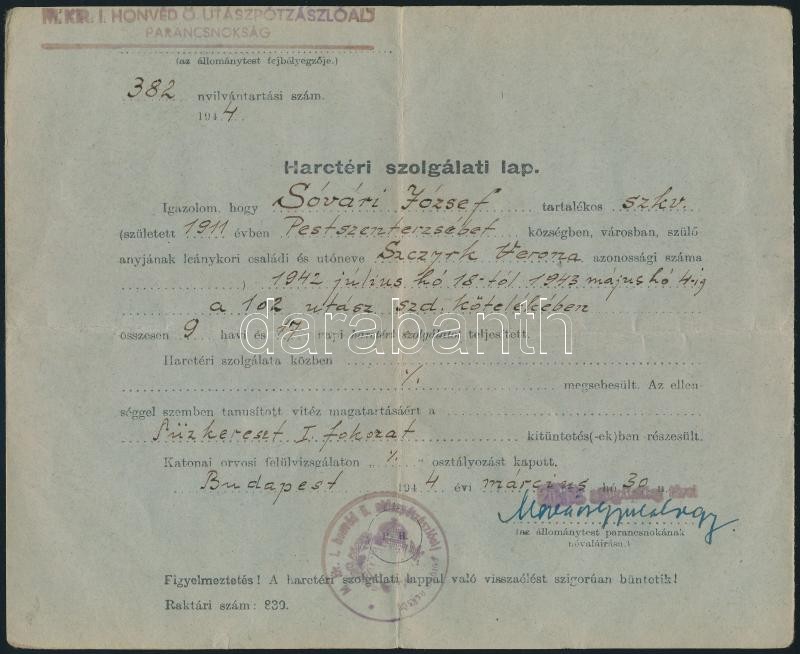 M. KIR. I. HONVÉD Ö. UTÁSZPÓTZÁSZLÓALJ
PARANCSNOKSÁG
(az állománytest fejbélyegzője.)
382 nyilvántartási szám.
1944.
Harctéri szolgálati lap.
Igazolom, hogy Sóvári József tartalékos szkv.
(született 1911 évben Pestszenterzsébet községben, városban, szülő
anyjának leánykori családi és utóneve Szczyrk Verona azonossági száma
, 1942 július hó 18-tól 1943 május hó 4-ig
a 102 utász szd. kötelékében
összesen 9 havi és 17 napi harctéri szolgálatot teljesített.
Harctéri szolgálata közben
·/. megsebesült. Az ellen-
séggel szemben tanusított vitéz magatartásáért a
Tűzkereszt I. fokozat kitüntetés(-ek)ben részesült.
Katonai orvosi felülvizsgálaton „ ·/. " osztályozást kapott.
Budapest 1944 évi március hó 30 n
(az állománytest parancsnokának
névaláírása.)
P. H.
Figyelmeztetés! A harctéri szolgálati lappal való visszaélést szigorúan büntetik!
Raktári szám: 830.
darabanth